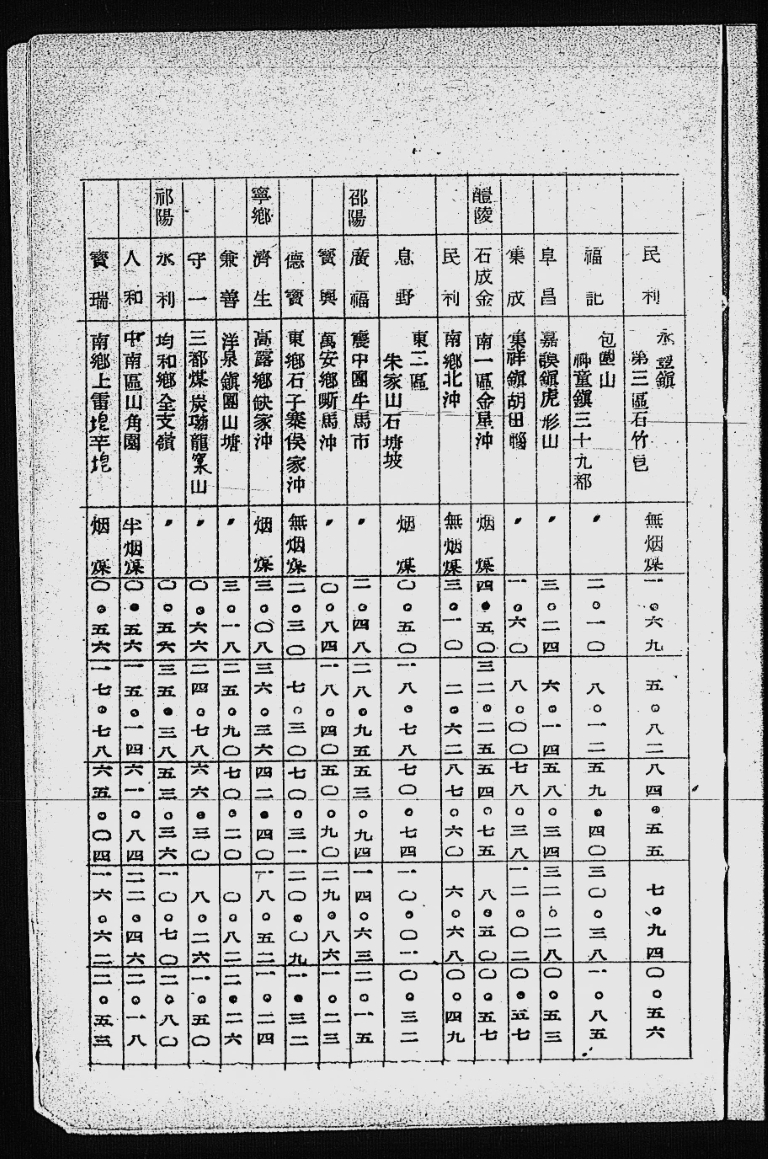 民利 永豐鎮 第三區石竹皀 無烟煤 一。六九 五。八二 八四。五五 七。九四 〇。五六
福記 包圓山 神童鎮三十九都 〃 二。一〇 八。一二 五九。四〇 三〇。三八 一。八五
阜昌 嘉謨鎮虎形山 〃 三。二四 六。一四 五八。三四 三二。二八 〇。五三
集成 集祥鎮胡田 〃 一。六〇 八。〇〇 七八。三八 一二。〇二 〇。五七
醴陵 石成金 南一區金星沖 烟煤 四。五〇 三二。二五 五四。七五 八。五〇 〇。五七
民利 南鄉北沖 無烟煤 三。一〇 二。六二 八七。六〇 六。六八 〇。四九
息野 東二區 朱家山石塘坡 烟煤 〇。五〇 一八。七八 七〇。七四 一〇。〇一 〇。三二
邵陽 廣福 震中團牛馬市 〃 二。四八 二八。九五 五三。九四 一四。六三 二。一五
寶興 萬安鄉嘶馬沖 〃 〇。八四 一八。四〇 五〇。九〇 二九。八六 一。二三
德寶 東鄉石子寨侯家沖 無烟煤 二。三〇 七。三〇 七〇。三一 二〇。〇九 一。三二
寧鄉 濟生 高露鄉缺家沖 烟煤 三。〇八 三六。三六 四二。四〇 一八。五二 一。二四
兼善 洋泉鎮團山塘 〃 三。一八 二五。九〇 七〇。二〇 〇。八二 二。二六
守一 三都煤炭龍窠山 〃 〇。六六 二四。七八 六六。三〇 八。二六 一。五〇
祁陽 永利 均和鄉全支嶺 〃 〇。五六 三五。三八 五三。三六 一〇。七〇 二。八〇
人和 中南區山角團 半烟煤 〇。五六 一五。一四 六一。八四 二二。四六 二。一八
寶瑞 南鄉上雷 烟煤 〇。五六 一七。七八 六五。〇四 一六。六二 二。五三